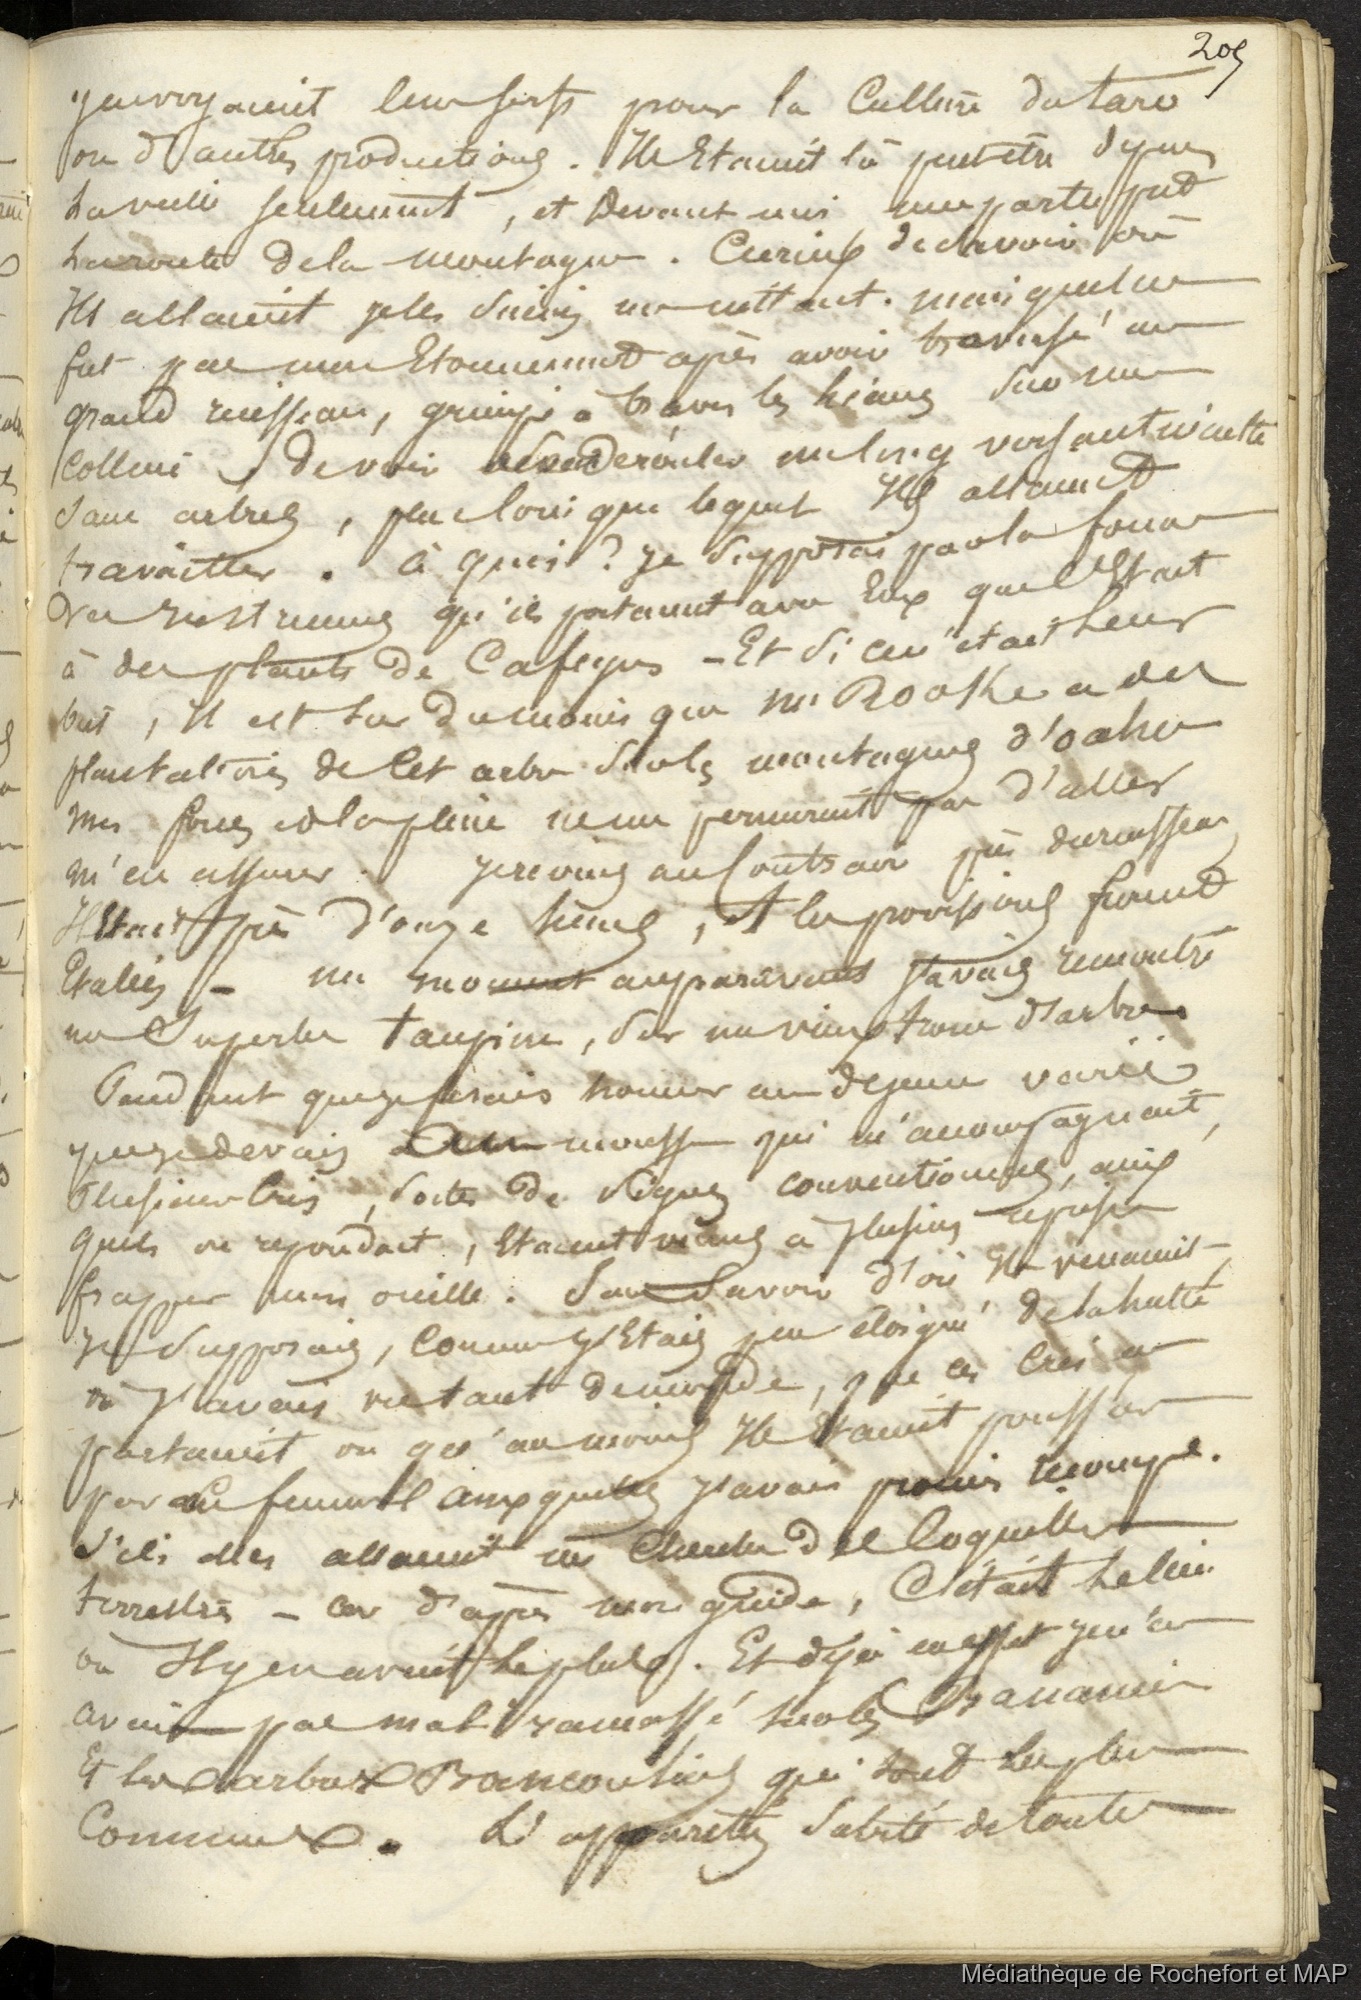 205
y envoyaient leur serfs pour la Culture du taro
ou d'autres productions. Ils Etaient là peut etre depuis
la veille seulement, et devant moi une partie prit
la route dela montagne. Curieux de savoir où
Ils allaient je les Suivis m'en mettant. mais quel ne
fut pas mon Etonnement après avoir traversé un
grand ruisseau, grimpé à travers les hianes sur une
Colline, de voir se derouler un long versant inculte
Sans arbres, plus loin que lequel Ils allaient
travailler. à quoi? je Supposai par la forme
des Instrumens qu'ils portaient avec Eux que c'Etait
à des plants de Cafeyers - Et Si ce n'etait leur
but, Il est sur du moins que Mr Rooke a des
plantations de Cet arbre Sur les montagnes d'oahu
mes forces et la pluie ne me permirent pas d'aller
m'en assurer. je revins au Contraire près du ruisseau
Il Etait près d'onze heures, Et les provisions furent
Etalées - un moment auparavant J'avais rencontré
un Superbe taupin, Sur un vieux tronc d'arbre.
Pendant que je faisais honneur au dejeuner varié
que je devais au mousse qui m'accompagnait,
Plusieurs Cris, Sortes de Signes conventionnels, auxquels
on repondait, Etaient venus à plusieurs reprises
frapper mon oreille. Sans Savoir d'où Ils venaient,
Je Supposais, Comme J'Etais peu éloigné dela hutte
où J'avais tant demandé, que ces Cris en
partaient ou qu'au moins Ils Etaient poussés
par les femmes auxquelles J'avais promis recompe.
S'ils elles allaient me Chercher des Coquilles
terrestres - car d'après mon guide, C'était le lieu
où Il y en avait le plus. Et déjà en effet je n'en
avais pas mal ramassé sur les Bananiers
Et les arbres Bancouliers qui sont les plus
Communs. L'apparetés Subite de toute
Médiathèque de Rochefort et MAP